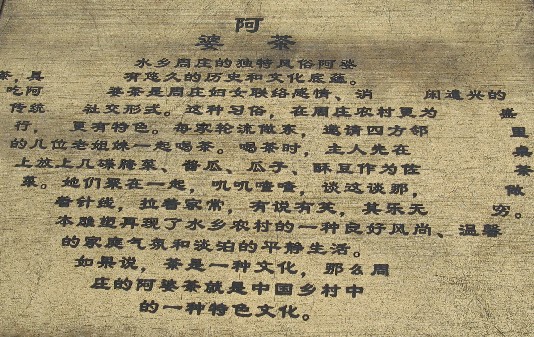 阿
婆 茶
水乡周庄的独特风俗阿婆
茶，具 有悠久的历史和文化底蕴。
吃阿 婆茶是周庄妇女联络感情、消 闲遣兴的
传统 社交形式。这种习俗，在周庄农村更为 盛
行， 更有特色。每家轮流做东，邀请四方邻 里
的几位老姐妹一起喝茶。喝茶时，主人先在 桌
上放上几碟腌菜、酱瓜、瓜子、酥豆作为佐 茶
菜。她们聚在一起，叽叽喳喳，谈这谈那， 做
着针线，拉着家常，有说有笑，其乐无 穷。
本雕塑再现了水乡农村的一种良好风尚、温馨
的家庭气氛和淡泊的平静生活。
如果说，茶是一种文化，那么周
庄的阿婆茶就是中国乡村中
的一种特色文化。